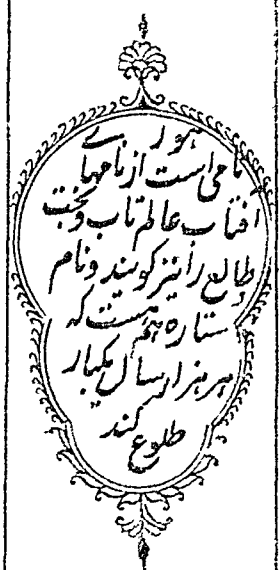 هور
نامی است از نامهای
آفتاب عالم تاب و بخت
و طالع را نیز گویند و نام
ستاره هم هست که
هر هزار سال یکبار
طلوع کند